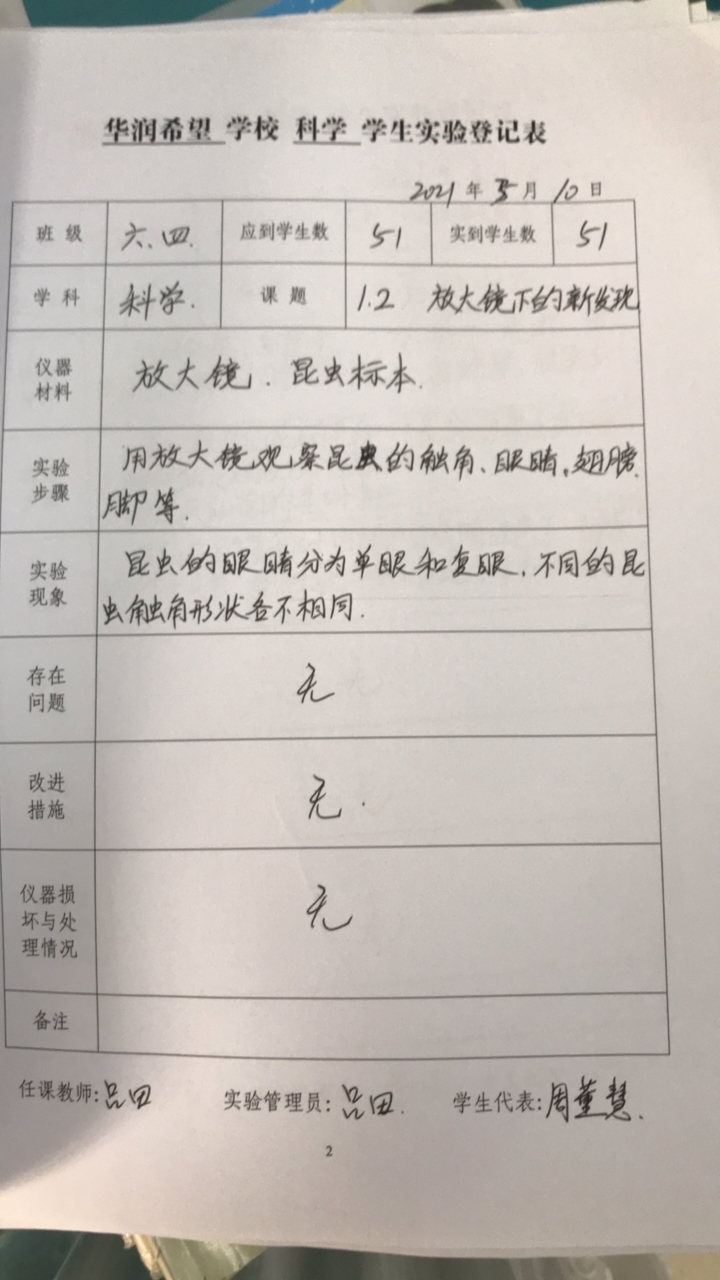 华润希望 学校 科学 学生实验登记表
2021 年 3 月 10 日
班 级 六.四. 应到学生数 51 实到学生数 51
学 科 科学. 课 题 1.2 放大镜下的新发现
仪器
材料
放大镜、昆虫标本.
实验
步骤
用放大镜观察昆虫的触角、眼睛、翅膀、
脚等.
实验
现象
昆虫的眼睛分为单眼和复眼,不同的昆
虫触角形状各不相同.
存在
问题
无
改进
措施
无.
仪器损
坏与处
理情况
无
备注
任课教师:吕田 实验管理员:吕田. 学生代表:周董慧.
2